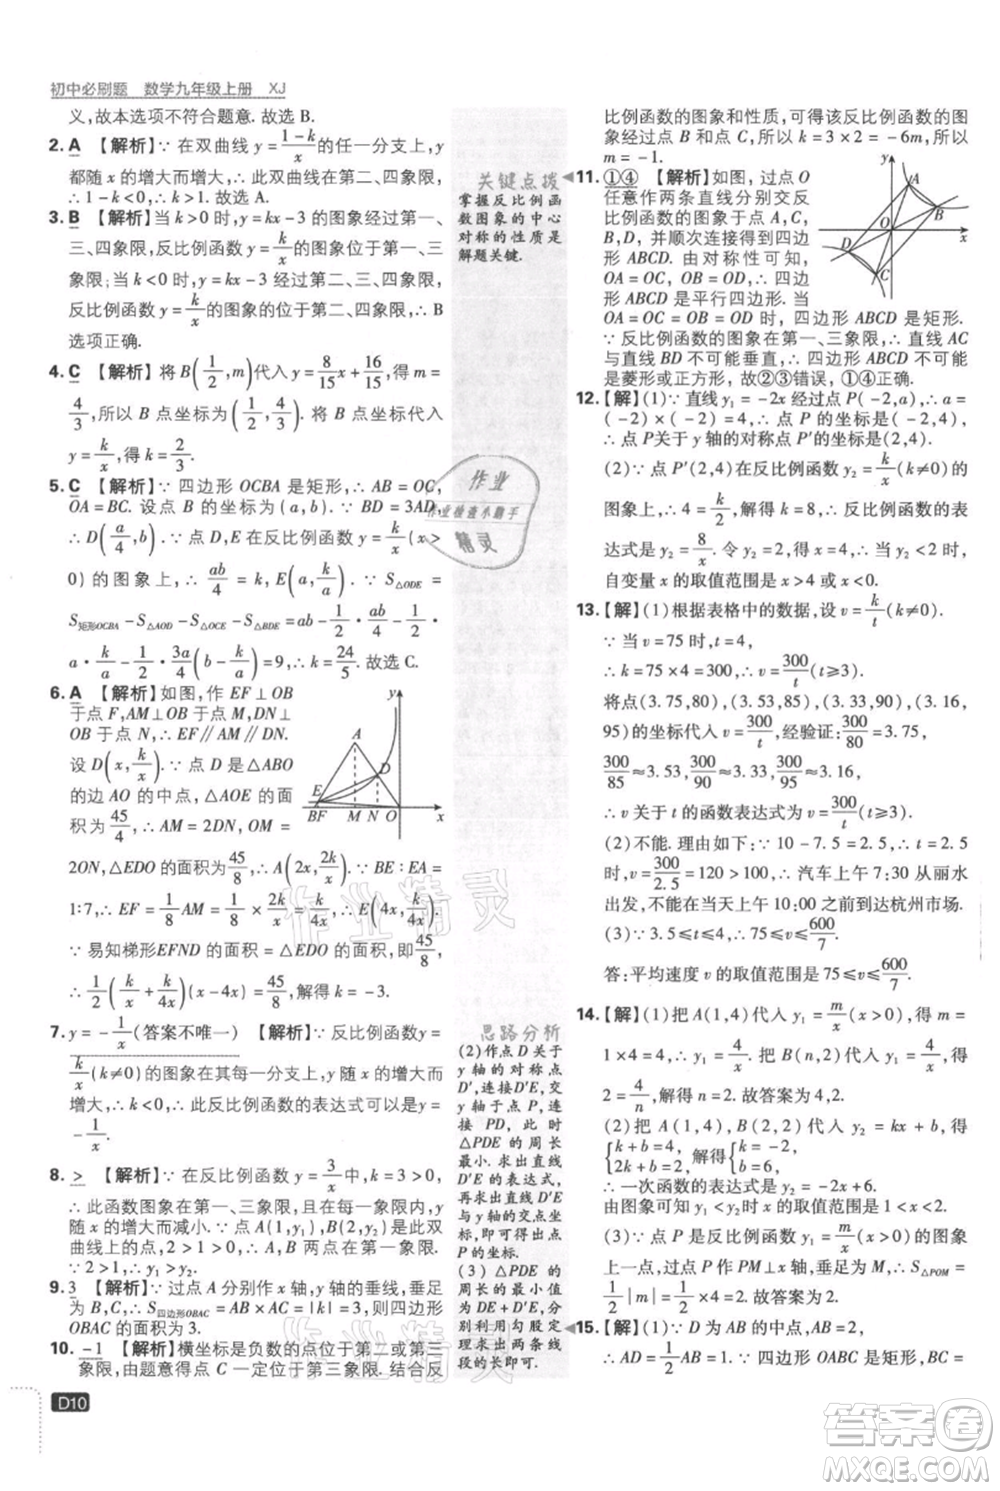 初中必刷题　数学九年级上册　XJ
义,故本选项不符合题意.故选 B.
2. A 【解析】∵ 在双曲线 y=(1-k)/x 的任一分支上, y
都随 x 的增大而增大,∴此双曲线在第二、四象限,
∴1-k<0,∴k>1.故选 A.
3. B 【解析】当 k>0 时, y=kx-3 的图象经过第一、
三、四象限,反比例函数 y=k/x 的图象位于第一、三
象限;当 k<0 时,y=kx-3 的图象经过第二、三、四
象限,反比例函数 y=k/x 的图象在第二、四象限,∴B
选项正确.
4. C 【解析】将 B(1/2,m)代入 y=8/15x+16/15,得 m=
4/3,所以 B 点坐标为(1/2,4/3). 将 B 点坐标代入
y=k/x,得 k=2/3.故选 C.
5. C 【解析】∵ 四边形 OCBA 是矩形,∴ AB=OC,
OA=BC. 设点 B 的坐标为(a,b). ∵ BD=3AD,
∴D(a/4,b). ∵ 点 D,E 在反比例函数 y=k/x(x>
0)的图象上,∴ ab/4=k,E(a,k/a). ∵ S△ODE=
S矩形OCBA-S△AOD-S△OCE-S△BDE=ab-1/2·ab/4-1/2
·a·k/a-1/2·3a/4(b-k/a)=9,∴k=24/5.故选 C.
6. A 【解析】如图,作 EF⊥OB
于点 F,AM⊥OB 于点 M,DN⊥
OB 于点 N,∴EF∥AM∥DN.
设 D(x,k/x).∵ 点 D 为△AOB
的边 AO 的中点,△AOE 的面积
为45/4,∴ AM=2DN,OM=
2ON,△EDO 的面积为45/8,∴A(2x,2k/x).∵ BE:EA=
1:7,∴ EF=1/8AM=1/8×2k/x=k/4x,∴ E(4x,k/4x).
∵ 易知梯形EFND 的面积=△EDO 的面积=45/8,
∴1/2(k/x+k/4x)(x-4x)=45/8,解得 k=-3.
y
A
D
E
BF
M
N
O
x
7. y=-1/x(答案不唯一) 【解析】∵反比例函数y=
k/x(k≠0)的图象在每一分支上,y 随 x 的增大而
增大,∴k<0,∴此反比例函数的表达式可以为
y=-1/x.
8. > 【解析】∵在反比例函数 y=3/x中,k=3>0,∴此
函数图象在第一、三象限,且在每一象限内 y 随 x
的增大而减小.∵ 点A(2,y1),B(1,y2)是此双
曲线上的点,∴A,B 两点在第一象限.
∵2>1,∴y2>y1.
9. 3 【解析】∵过点 A 分别作 x 轴,y 轴的垂线,垂足
为 B,C,∴S四边形OBAC=OB×AB=|k|=3,即四边形
OBAC 的面积为 3.
10. -1 【解析】横坐标是负数的点位于第二或第三
象限,由题意可知点 C 一定位于第三象限. 结合反
D10
关键点拨
掌握反比例函
数图象的中心
对称的性质是
解题关键.
思路分析
(2)作点 D 关于
y 轴的对称点
D′,连接D′E,交
y 轴于点 P,连
接 PD, 此 时
△PDE 的周长
最小. 求出直线
D′E 的表达式,
再求出直线D′E
与y轴的交点坐
标,即可得出点
P 的坐标.
(3) △PDE 的
周长的最小值
为DE+D′E,分
别利用勾股定
理求出两条线
段的长即可.
比例函数的图象和性质,可得该反比例函数的图
象经过点 B 和点 C,所以 k=3×2=-6m,所以
m=-1.
11. ①④ 【解析】如图,过点 O
任意作两条直线分别交反
比例函数的图象于点 A,C,
B,D,并顺次连接得到四边
形 ABCD. 由对称性可知,
OA=OC,OB=OD,∴ 四边
形 ABCD 是平行四边形.
y
A
B
O
x
D
C
当 OA=OC=OB=OD 时,四边形 ABCD 是矩形.
∵ 反比例函数的图象在第一、三象限,∴ 直线 AC
与直线 BD 不可能垂直,∴ 四边形 ABCD 不可能
是菱形或正方形,故②③错误,①④正确.
12. 【解】(1)∵直线 y1=-2x经过点 P(-2,a),∴a=
(-2)×(-2)=4,∴点 P 的坐标为(-2,4),
∴点 P关于 y 轴的对称点 P′的坐标为(2,4).
(2)∵点 P′(2,4)在反比例函数 y2=k/x(k≠0)的
图象上,∴4=k/2,解得 k=8,∴反比例函数的表
达式是 y2=8/x. 令 y2=8/x<2,解得 x>4或 x<0,
自变量 x 的取值范围是 x>4 或 x<0.
13. 【解】(1)根据表格中的数据,设 v=k/t(k≠0).
∵当 v=75 时,t=4,
∴k=75×4=300,∴v=300/t(t≥3).
将点(3.75,80),(3.53,85),(3.33,90),(3.16,
95)的坐标代入 v=300/t,经验证:300/80=3.75,
300/85≈3.53,300/90≈3.33,300/95≈3.16,
∴v 关于 t 的函数表达式为 v=300/t(t≥3).
(2)不能. 理由如下:∵10-7.5=2.5,∴当 t=2.5
时,v=300/2.5=120>100,∴ 汽车上午 7:30 从丽水
出发,不能在当天上午 10:00 之前到达杭州市场.
(3)∵3.5≤t≤4,∴75≤v≤600/7.
答:平均速度 v 的取值范围是 75≤v≤600/7.
14. 【解】(1)把 A(1,4)代入 y1=m/x(x>0),得 m=
1×4=4,∴ y1=4/x. 把 B(n,2)代入 y1=4/x,得
2=4/n,解得 n=2. 故答案为 4,2.
(2)把 A(1,4),B(2,2)代入 y2=kx+b,得
{k+b=4, 2k+b=2, 解得{k=-2, b=6,
∴一次函数的表达式为 y2=-2x+6.
由图象可知 y1<y2 时x的取值范围是 1<x<2.
(3)∵ 点 P 是反比例函数 y1=m/x(x>0)的图象
上一点,过点 P 作 PM⊥x 轴,垂足为 M,∴S△POM=
1/2|m|=1/2×4=2. 故答案为 2.
15. 【解】(1)∵D为 AB 的中点,AB=2,
∴AD=1/2AB=1. ∵ 四边形 OABC 是矩形,BC=
作业
作业检查小助手
精灵
作业精灵
作业精灵
答案圈
MXQE.COM